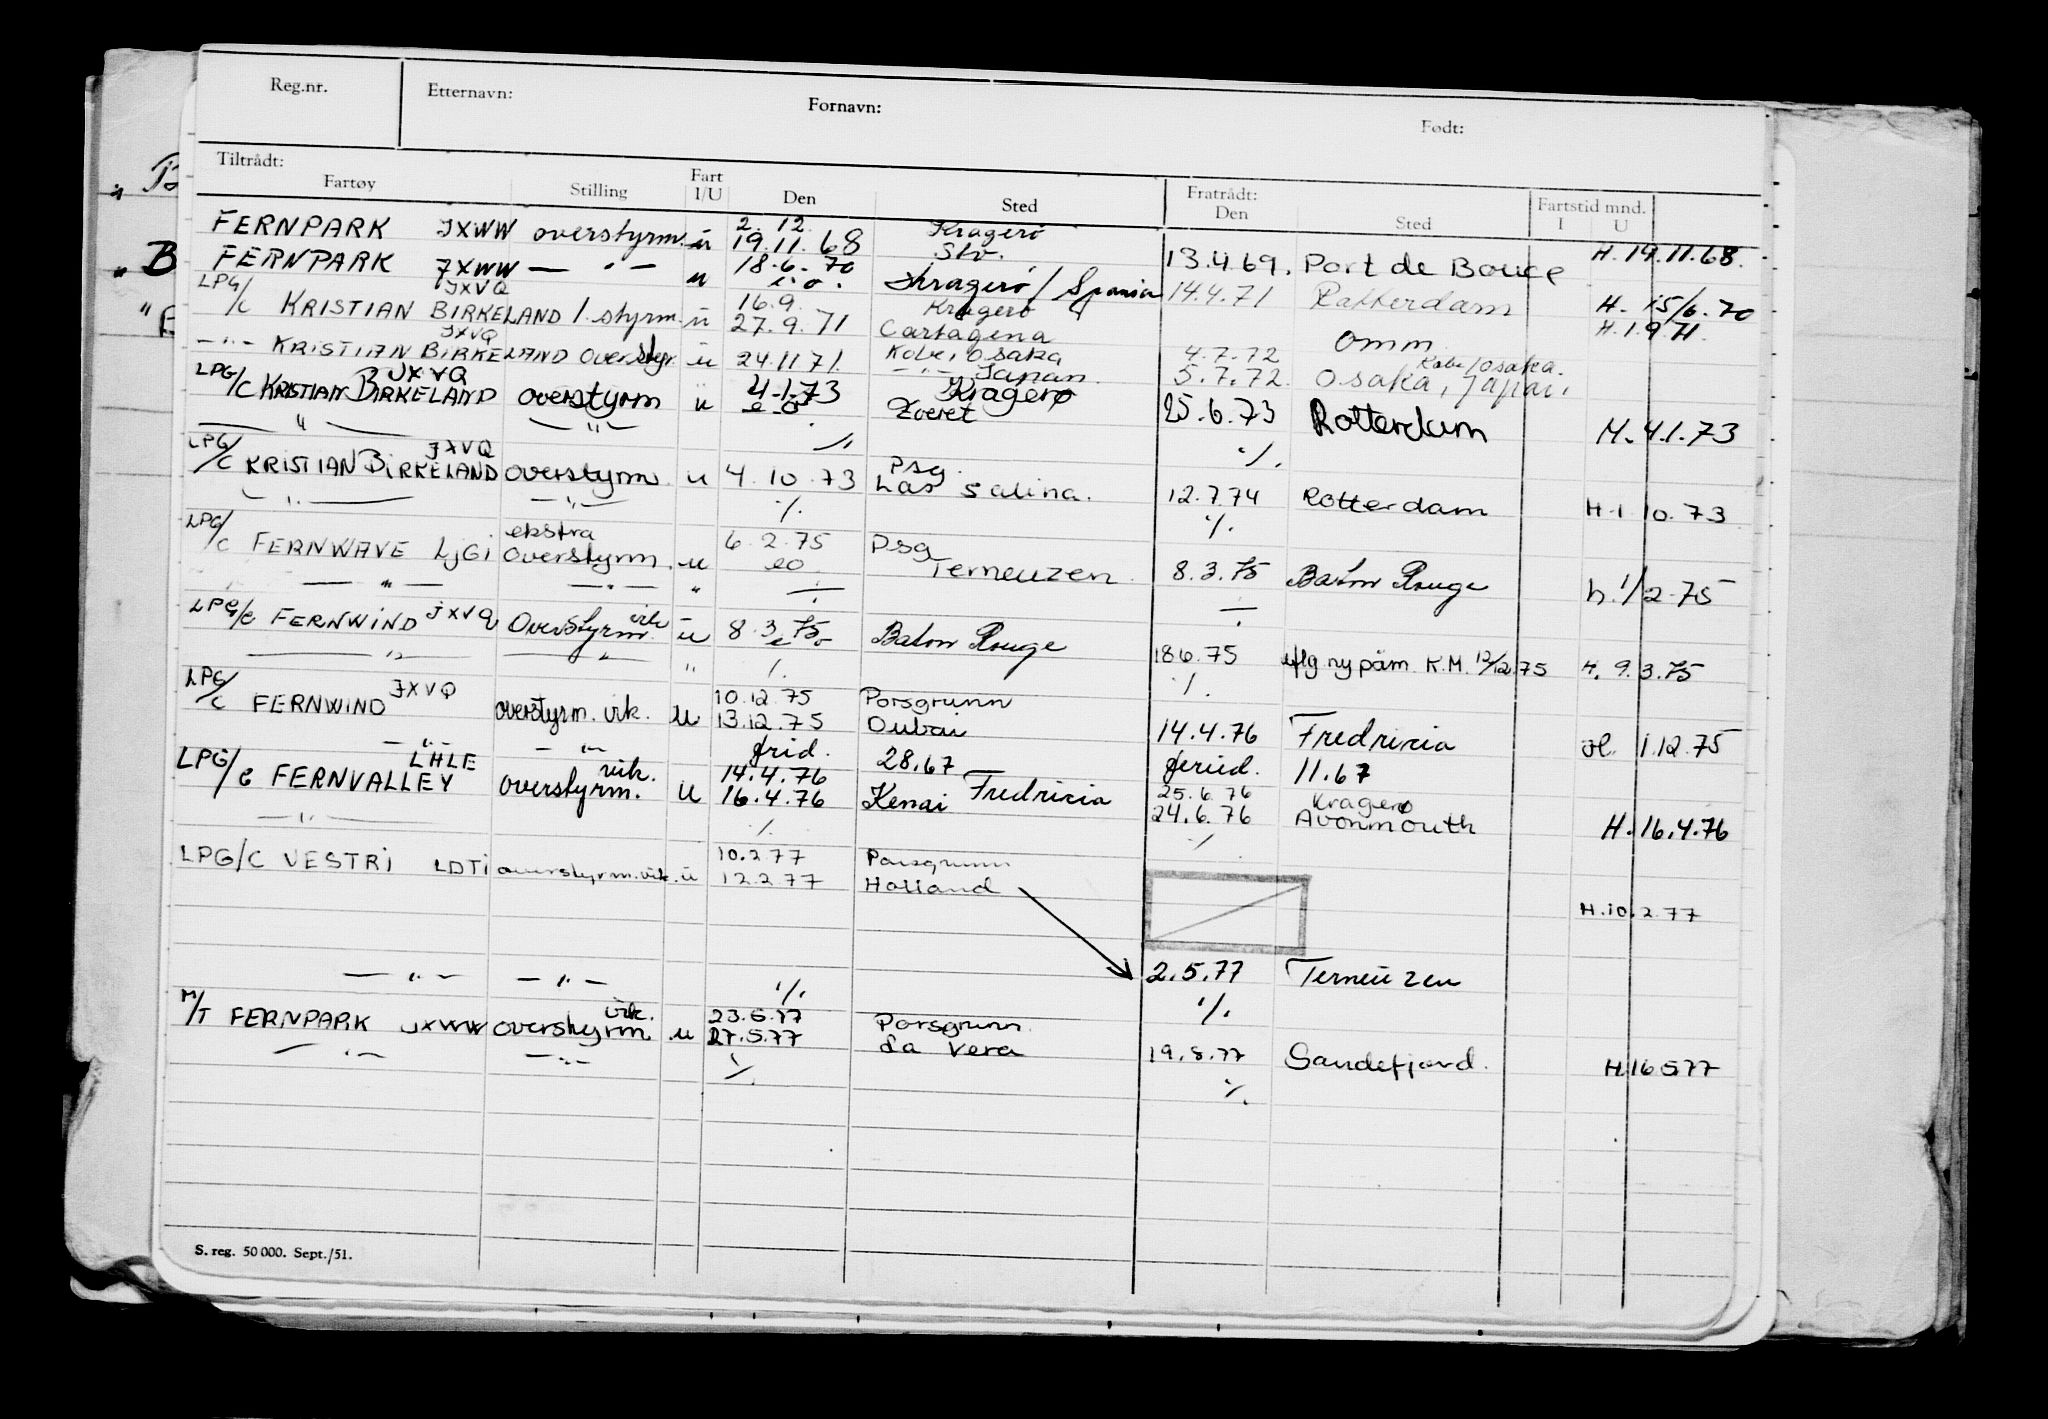 Reg.nr. Etternavn: Fornavn: Født:
Tiltrådt: Fratrådt: Fartstid mnd.
Fartøy Stilling Fart I/U Den Sted Den Sted I U
2. 12. Kragerø
FERNPARK JXWW overstyrm. u 19.11.68 Stv. 13.4.69. Port de Bouce H. 19.11.68.
FERNPARK JXWW — " — u 18.6.70 e.o. Kragerø / Spania 14.4.71 Rotterdam H. 15/6.70
LPG/C KRISTIAN BIRKELAND JXVQ 1. styrm. u 16.9. Kragerø H. 1.9.71
27.9.71 Cartagena omm
— " — KRISTIAN BIRKELAND JXVQ overstyr. u 24.11 71. Kobe, Osaka 4.7.72 Kobe/osaka.
— " — Japan. 5.7.72. Osaka, Japan,
LPG/C KRISTIAN BIRKELAND JXVQ overstyrm u 4.1.73 Kragerø 25.6.73 Rotterdam M. 4.1.73
e o
— " — — " — ·/. ·/.
LPG/C KRISTIAN BIRKELAND JXVQ overstyrm. u 4.10.73 Psg. Las Salina. 12.7.74 Rotterdam H. 1.10.73
— " — — " — ·/. ·/.
LPG/C FERNWAVE LJGI ekstra overstyrm. u 6.2.75 eo Psg Terneuzen. 8.3.75 Baton Rouge h. 1/2.75
— " — — " — " ·/. ·/.
LPG/C FERNWIND JXVQ Overstyrm. vik u 8.3.75 e o Baton Rouge 18.6.75 iflg ny påm. K.M. 12/12.75 H. 9.3.75
— " — — " — " ·/. ·/.
LPG/C FERNWIND JXVQ overstyrm. vik. u 10.12.75 Porsgrunn
13.12.75 Dubai 14.4.76 Fredricia H. 1.12.75
— " — — " — frid. 28.67 feried. 11.67
LPG/C FERNVALLEY LHLE overstyrm. vik. u 14.4.76 Fredricia 25.6.76 Kragerø
16.4.76 Kenai 24.6.76 Avonmouth H. 16.4.76
— " — ·/. ·/.
LPG/C VESTRI LDTI overstyrm. vik. u 10.2.77 Porsgrunn
12.2.77 Holland H. 10.2.77
— " — — " — ·/. 2.5.77 Terneuzen
·/.
M/T FERNPARK JXWW overstyrm. vik. u 23.5.77 Porsgrunn.
27.5.77 La Vera 19.8.77 Sandefjord. H. 16.5.77
— " — — " — ·/. ·/.
S. reg. 50 000. Sept./51.